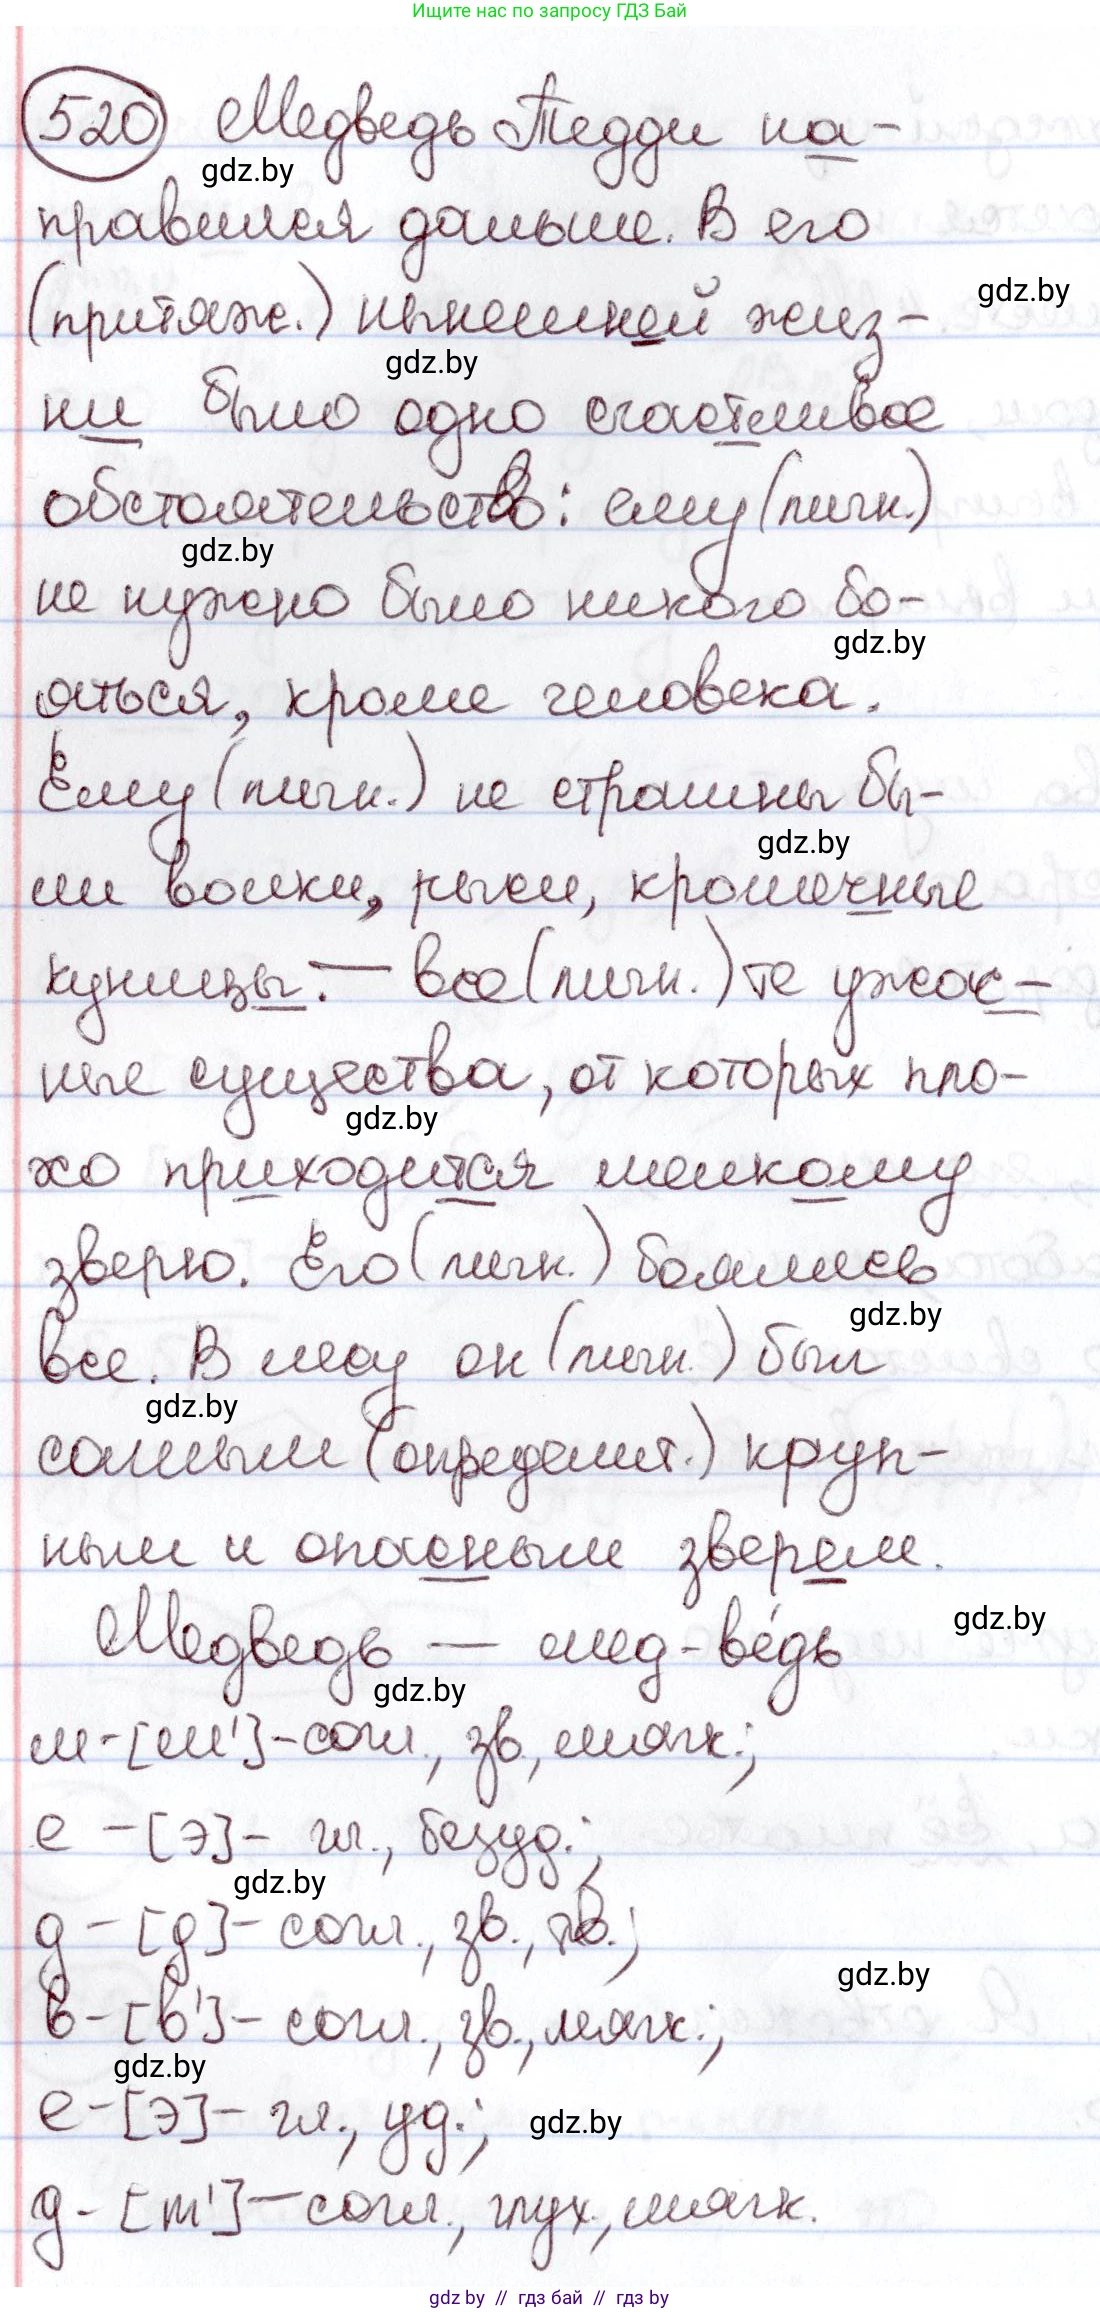 Ищите нас по запросу ГДЗ Бай
520 Медведь Тедди на-
gdz.by
правился дальше. В его
gdz.by
(притяж.) нынешней жиз-
gdz.by
ни было одно счастливое
обстоятельство: ему (личн.)
gdz.by
не нужно было никого бо-
gdz.by
яться, кроме человека.
Ему (личн.) не страшны бы-
gdz.by
ли волки, рыси, кромечные
куницы. — все (личн.) те ужас-
ные существа, от которых пло-
gdz.by
хо приходится мелкому
зверю. Его (личн.) боялись
gdz.by
все. В лесу он (личн.) был
gdz.by
самым (определит.) круп-
ным и опасным зверем.
gdz.by
Медведь — мед-ве́дь
gdz.by
м-[м']-согл., зв., мягк.;
е -[э]- гл., безуд.;
gdz.by
д -[д]- согл., зв., тв.;
gdz.by
в-[в']- согл., зв., мягк.;
gdz.by
е-[э]- гл., уд.;
gdz.by
д-[т']-согл., глух., мягк.
gdz by // гдз бай // гдз by